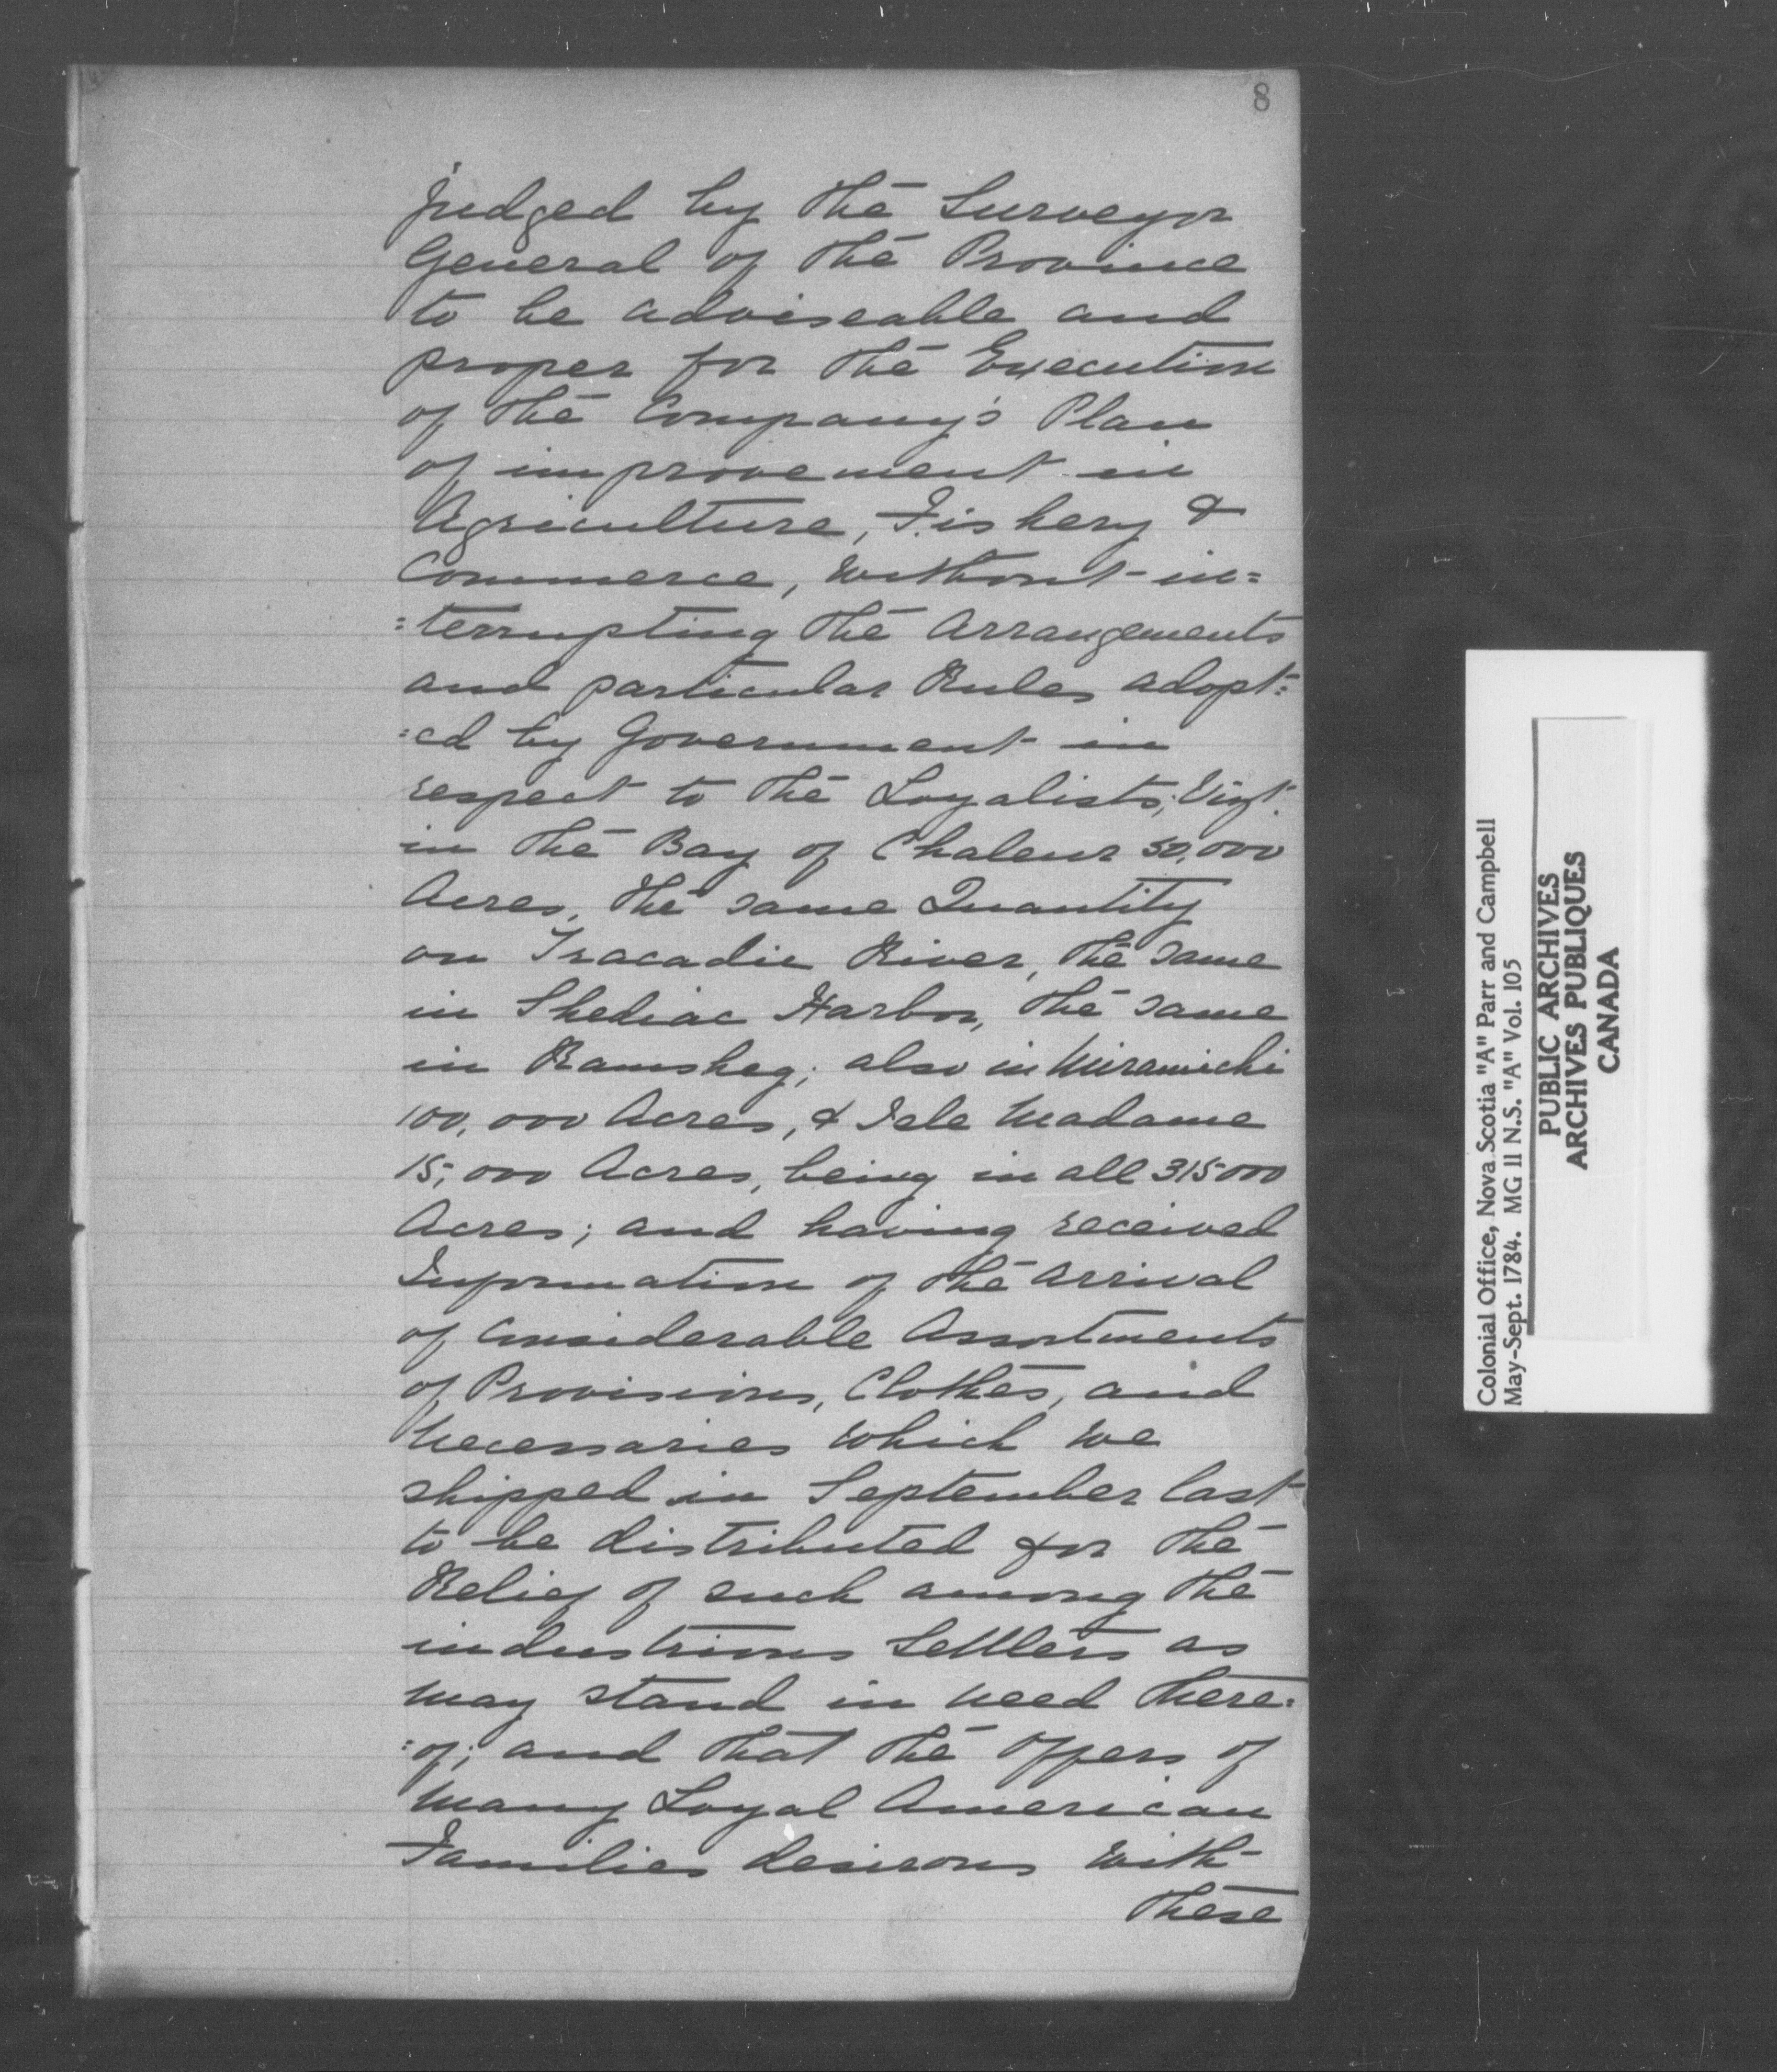 8
judged by the Surveyor
General of the Province
to be adviseable and
proper for the Execution
of the Company's Plan
of improvement in
Agriculture, Fishery &
Commerce, without in=
=terrupting the Arrangements
and particular Rules adopt=
=ed by Government in
respect to the Loyalists; Vizt.
in the Bay of Chaleur 50,000
Acres, the same Quantity
on Tracadie River, the same
in Shediac Harbor, the same
in Ramsheg; also in Miramichi
100,000 Acres, & Isle Madame
15,000 Acres, being in all 315000
Acres; and having received
Information of the arrival
of Considerable Assortments
of Provisions, Clothes, and
Necessaries which we
shipped in September last
to be distributed for the
Relief of such among the
industrious Settlers as
may stand in need there=
=of; and that the Offers of
many Loyal American
Families desirous with
these
Colonial Office, Nova Scotia "A" Parr and Campbell
May-Sept. 1784. MG 11 N.S. "A" Vol. 105
PUBLIC ARCHIVES
ARCHIVES PUBLIQUES
CANADA